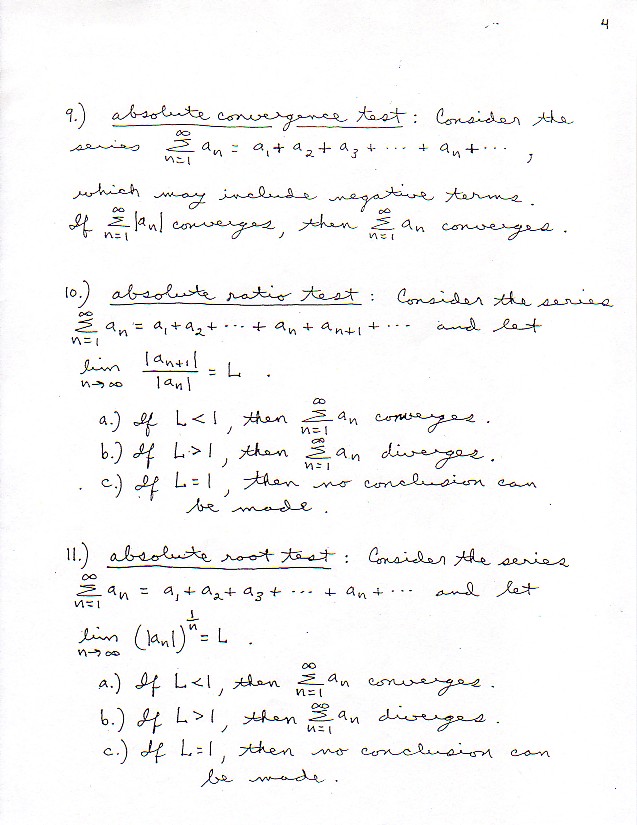 4
9.) absolute convergence test : Consider the
series ∑_{n=1}^{∞} a_n = a_1 + a_2 + a_3 + ··· + a_n + ··· ,
which may include negative terms .
If ∑_{n=1}^{∞} |a_n| converges, then ∑_{n=1}^{∞} a_n converges .
10.) absolute ratio test : Consider the series
∑_{n=1}^{∞} a_n = a_1 + a_2 + ··· + a_n + a_{n+1} + ··· and let
lim_{n→∞} |a_{n+1}| / |a_n| = L .
a.) If L < 1 , then ∑_{n=1}^{∞} a_n converges .
b.) If L > 1 , then ∑_{n=1}^{∞} a_n diverges .
c.) If L = 1 , then no conclusion can
be made .
11.) absolute root test : Consider the series
∑_{n=1}^{∞} a_n = a_1 + a_2 + a_3 + ··· + a_n + ··· and let
lim_{n→∞} (|a_n|)^{1/n} = L .
a.) If L < 1 , then ∑_{n=1}^{∞} a_n converges .
b.) If L > 1 , then ∑_{n=1}^{∞} a_n diverges .
c.) If L = 1 , then no conclusion can
be made .